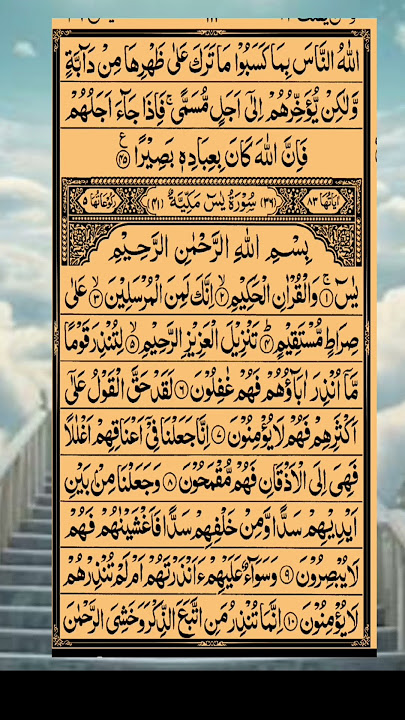 اللّٰهُ النَّاسَ بِمَا كَسَبُوْا مَا تَرَكَ عَلٰى ظَهْرِهَا مِنْ دَآبَّةٍ
وَّلٰكِنْ يُّؤَخِّرُهُمْ اِلٰٓى اَجَلٍ مُّسَمًّى ۚ فَاِذَا جَآءَ اَجَلُهُمْ
فَاِنَّ اللّٰهَ كَانَ بِعِبَادِهٖ بَصِيْرًا ۝۴۵ ع
اٰيَاتُهَا ۸۳ (۳۶) سُوْرَةُ يٰسٓ مَكِّيَّةٌ (۴۱) رُكُوْعَاتُهَا ۵
بِسْمِ اللّٰهِ الرَّحْمٰنِ الرَّحِيْمِ
يٰسٓ ۝۱ وَالْقُرْاٰنِ الْحَكِيْمِ ۝۲ اِنَّكَ لَمِنَ الْمُرْسَلِيْنَ ۝۳ عَلٰى
صِرَاطٍ مُّسْتَقِيْمٍ ۝۴ تَنْزِيْلَ الْعَزِيْزِ الرَّحِيْمِ ۝۵ لِتُنْذِرَ قَوْمًا
مَّآ اُنْذِرَ اٰبَآؤُهُمْ فَهُمْ غٰفِلُوْنَ ۝۶ لَقَدْ حَقَّ الْقَوْلُ عَلٰٓى
اَكْثَرِهِمْ فَهُمْ لَا يُؤْمِنُوْنَ ۝۷ اِنَّا جَعَلْنَا فِيْٓ اَعْنَاقِهِمْ اَغْلٰلًا
فَهِىَ اِلَى الْاَذْقَانِ فَهُمْ مُّقْمَحُوْنَ ۝۸ وَجَعَلْنَا مِنْۢ بَيْنِ
اَيْدِيْهِمْ سَدًّا وَّمِنْ خَلْفِهِمْ سَدًّا فَاَغْشَيْنٰهُمْ فَهُمْ
لَا يُبْصِرُوْنَ ۝۹ وَسَوَآءٌ عَلَيْهِمْ ءَاَنْذَرْتَهُمْ اَمْ لَمْ تُنْذِرْهُمْ
لَا يُؤْمِنُوْنَ ۝۱۰ اِنَّمَا تُنْذِرُ مَنِ اتَّبَعَ الذِّكْرَ وَخَشِىَ الرَّحْمٰنَ